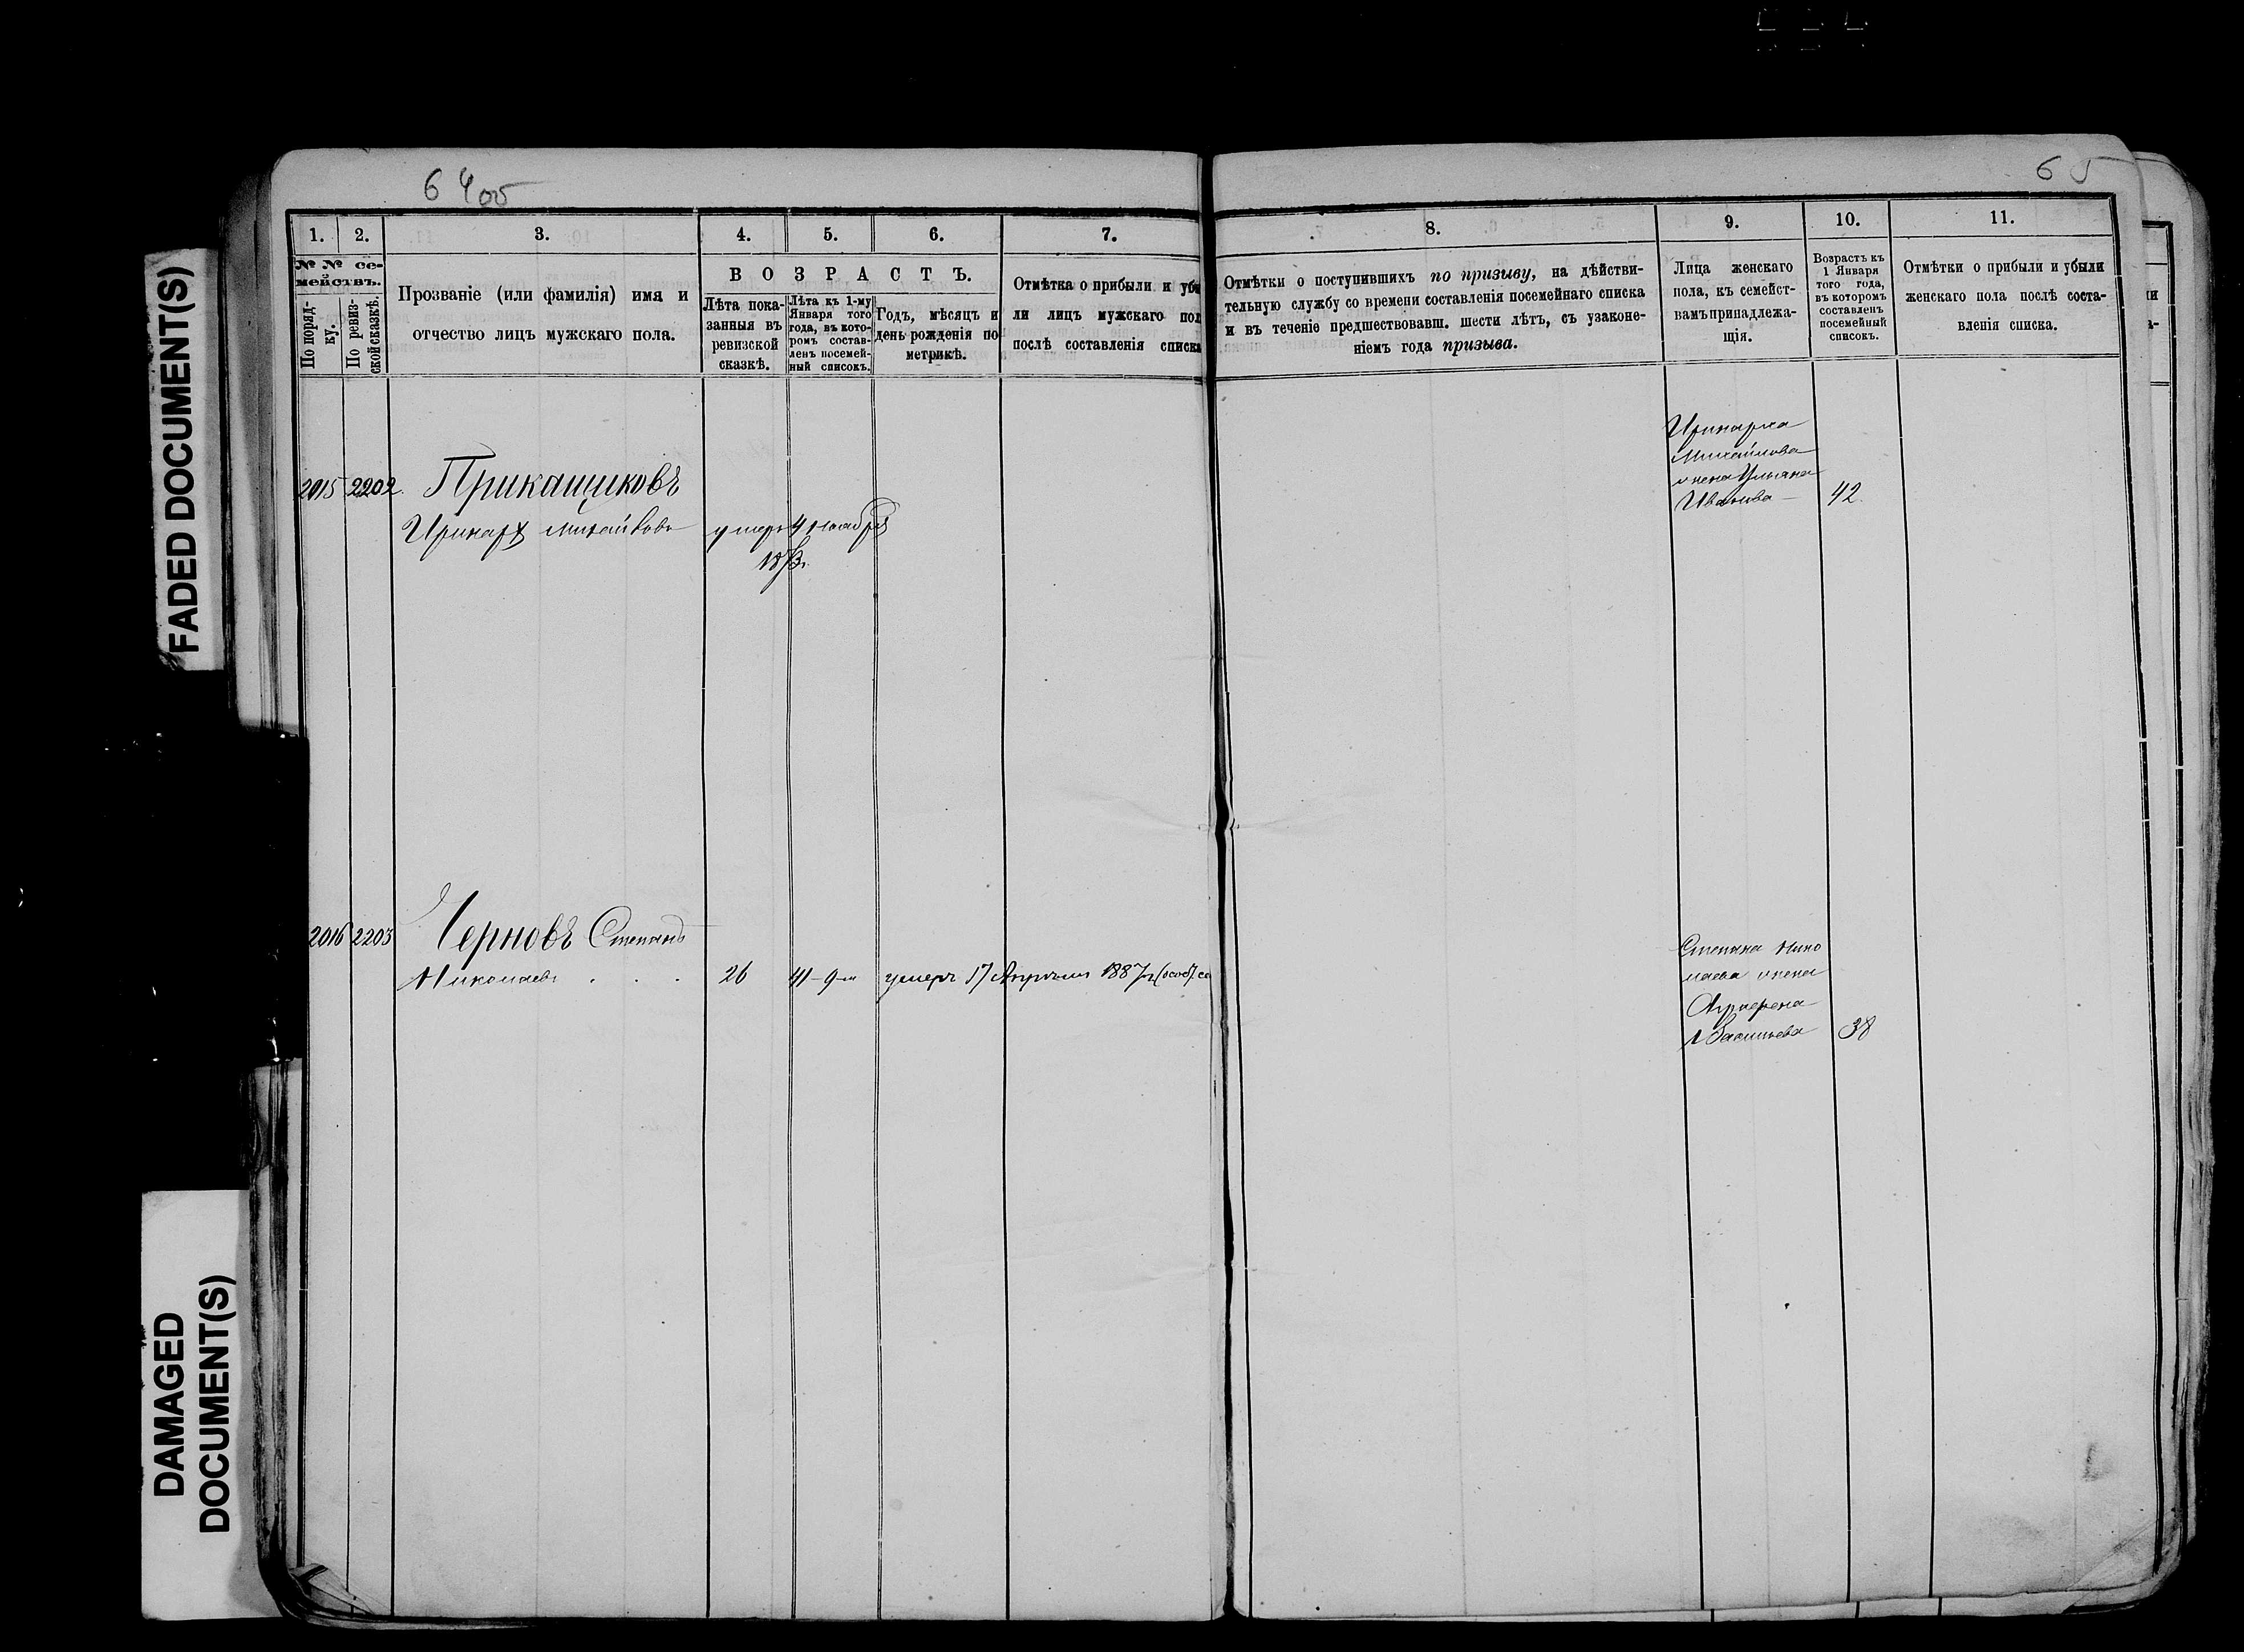 FADED DOCUMENT(S)
DAMAGED
DOCUMENT(S)
65
1.
2.
3.
4.
5.
6.
7.
8.
9.
10.
11.
№ № се-
мействъ.
По поряд-
ку.
По ревиз-
ской сказкѣ.
Прозваніе (или фамилія) имя и
отчество лицъ мужскаго пола.
ВОЗРАСТЪ.
Лѣта пока-
занныя въ
ревизской
сказкѣ.
Лѣта къ 1-му
Января того
года, въ кото-
ромъ состав-
ленъ посемей-
ный списокъ.
Годъ, мѣсяцъ и
день рожденія по
метрикѣ.
Отмѣтка о прибыли и убы
ли лицъ мужскаго пол
послѣ составленія списка
Отмѣтки о поступившихъ по призыву, на дѣйстви-
тельную службу со времени составленія посемейнаго списка
и въ теченіе предшествовавш. шести лѣтъ, съ узаконе-
ніемъ года призыва.
Лица женскаго
пола, къ семейст-
вамъ принадлежа-
щія.
Возрастъ къ
1 Января
того года,
въ которомъ
составленъ
посемейный
списокъ.
Отмѣтки о прибыли и убыли
женскаго пола послѣ соста-
вленія списка.
2015 2202. Прикащиковъ
Иринарх Михайловъ умеръ 4 ноября
187
Иринарха
Михайлова
жена Ульяна
Иванова — 42.
2016 2203 Черновъ Степанъ
Николаевъ . . . 26 41-9м умеръ 17 Апрѣля 1887г.
Степана Нико
лаева жена
Аграфена
Васильева 38